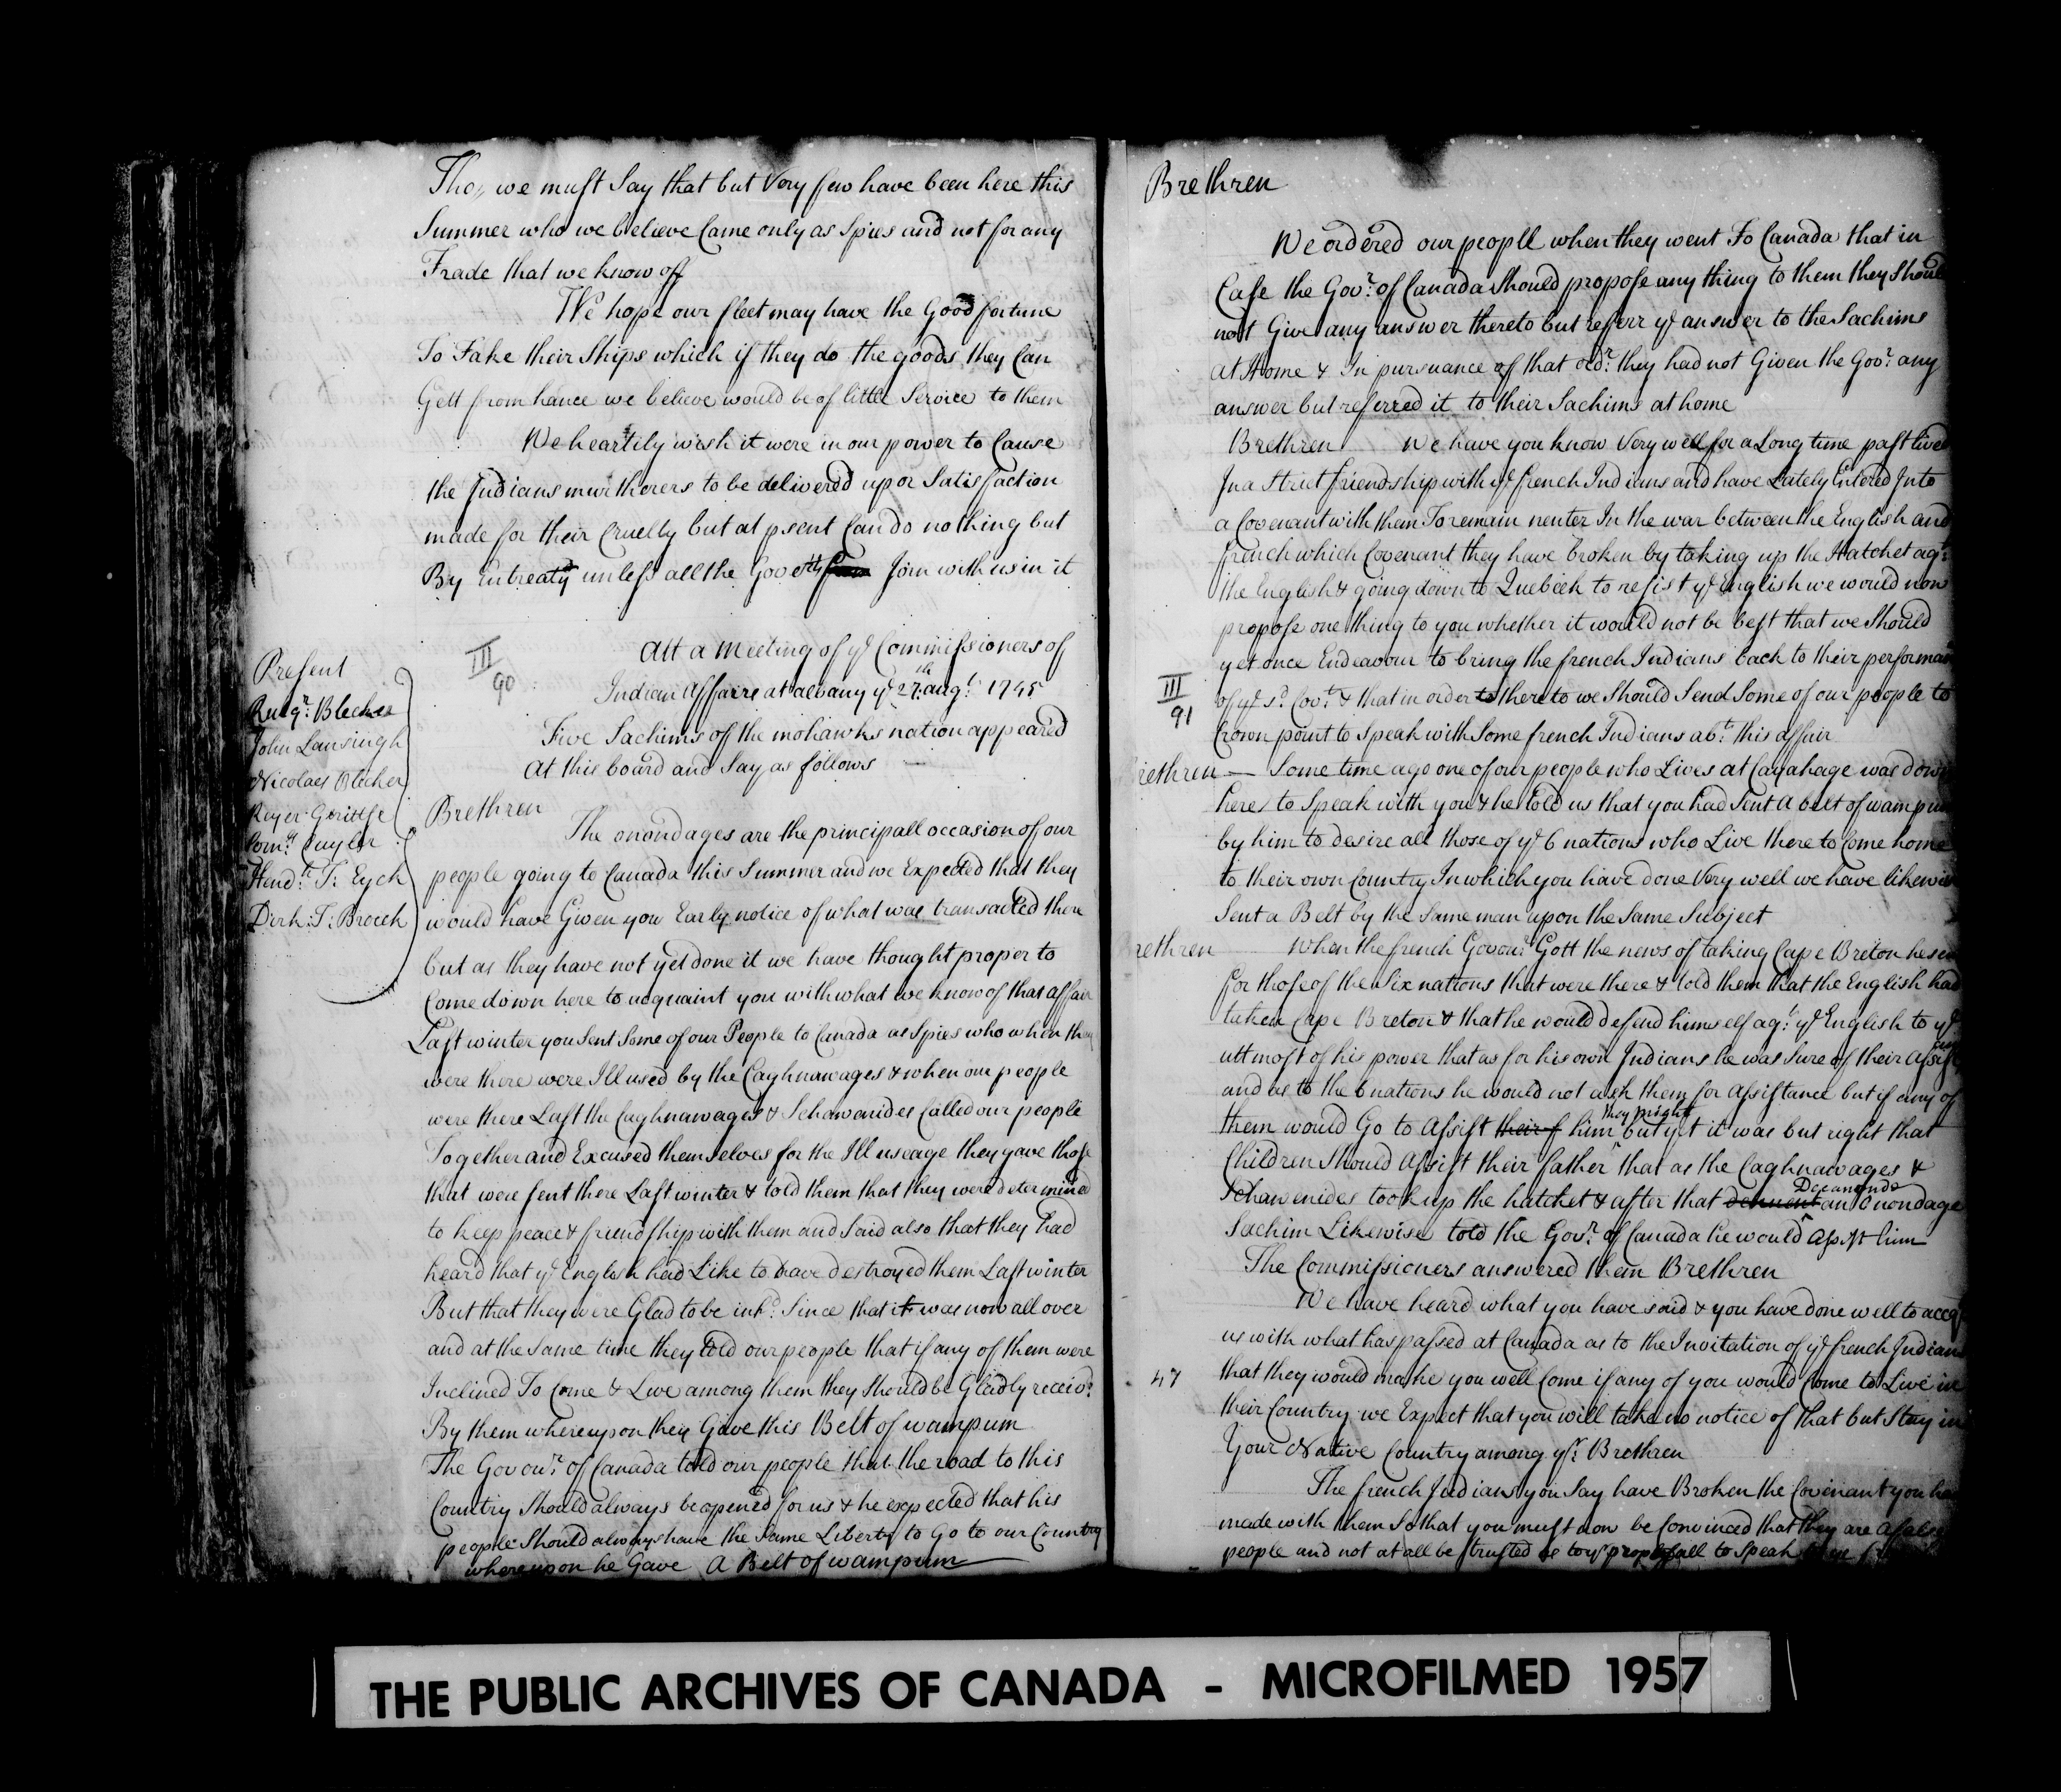 Tho,, we must Say that but Very few have been here this
Summer who we believe Came only as Spies and not for any
Trade that we know off
We hope our fleet may have the Good fortune
To Take their Ships which if they do the goods they Can
Gett from hance we believe would be of little Service to them
We heartily wish it were in our power to Cause
the Indians murtherers to be delivered up or Satisfaction
made for their Cruelty but at psent Can do nothing but
By Entreaty unless all the Govtts Join with us in it
III
90
Att a Meeting of ye Commissioners of
Indian Affairs at albany ye 27th augt 1745
Present
Rutgr Blecker
John Lansingh
Nicolaes Blecker
Reyer Gerittse
Cornls Cuyler
Hendk T: Eyck
Dirk: T: Broeck
Five Sachims of the mohawks nation appeared
At this board and Say as follows
Brethren
The onondages are the principall occasion of our
people going to Canada this Summer and we Expected that they
would have Given you Early notice of what was transacted there
but as they have not yet done it we have thought proper to
Come down here to acquaint you with what we know of that affair
Last winter you Sent Some of our People to Canada as Spies who when they
were there were Ill used by the Caghnawages & when our people
were there Last the Caghnawages & Schawenides Called our people
Together and Excused themselves for the Ill useage they gave those
that were sent there Last winter & told them that they were determined
to keep peace & friendship with them and Said also that they had
heard that ye English had Like to have destroyed them Last winter
But that they were Glad to be infd. Since that it was now all over
and at the Same time they told our people that if any of them were
Inclined To Come & Live among them they Should be Gladly receivd.
By them whereupon they Gave this Belt of wampum
The Govour. of Canada told our people that the road to this
Country Should always be opened for us & he expected that his
people Should always have the Same Liberty to Go to our Country
whereupon he Gave A Belt of wampum
Brethren
We ordered our people when they went To Canada that in
Case the Govr. of Canada Should propose any thing to them they Should
not Give any answer thereto but referr ye answer to the Sachims
at Home & In pursuance of that ordr. they had not Given the Govr. any
answer but referred it to their Sachims at home
Brethren We have you know Very well for a Long time past lived
In a Strict friendship with ye french Indians and have Lately Entered Into
a Covenant with them To remain neuter In the war between the English and
french which Covenant they have broken by taking up the Hatchet agt.
the English & going down to Quebeck to resist ye English we would now
propose one thing to you whether it would not be best that we Should
yet once Endeavour to bring the french Indians back to their performan
III
91
of ye sd. Covt. & that in order to thereto we Should Send Some of our people to
Crown point to Speak with Some french Indians abt. this affair
rethren — Some time ago one of our people who Lives at Cayahage was down
here to Speak with you & he told us that you had Sent A belt of wampum
by him to desire all those of ye 6 nations who Live there to Come home
to their own Country In which you have done Very well we have likewise
Sent a Belt by the Same man upon the Same Subject
rethren When the french Govour. Gott the news of taking Cape Breton he sen
for those of the Six nations that were there & told them that the English had
taken Cape Breton & that he would defend himself agt. ye English to ye
uttmost of his power that as for his own Indians he was Sure of their Assist
and as to the 6 nations he would not ask them for Assistance but if any of
them would Go to Assist their f him they might but yet it was but right that
Children Should Assist their father that as the Caghnawages &
Schawenides took up the hatchet & after that Decanonds an Onondage
Sachim Likewise told the Govr. of Canada he would Assist him
The Commissioners answered them Brethren
We have heard what you have said & you have done well to acc
us with what has passed at Canada as to the Invitation of ye french Indians
47
that they would make you well Come if any of you would Come to Live in
their Country we Expect that you will take no notice of that but Stay in
Your Native Country among yr. Brethren
The french Indians you Say have Broken the Covenant you ha
made with them So that you must now be Convinced that they are A false
people and not at all be trusted as to yr proposall to Speak
THE PUBLIC ARCHIVES OF CANADA - MICROFILMED 1957